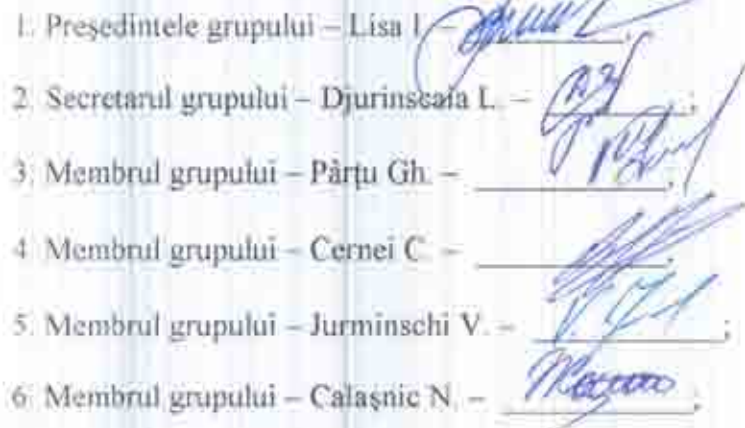 1. Președintele grupului – Lisa I. – ;
2. Secretarul grupului – Djurinscaia L. – ;
3. Membrul grupului – Pârțu Gh. – ;
4. Membrul grupului – Cernei C. – ;
5. Membrul grupului – Jurminschi V. – ;
6. Membrul grupului – Calașnic N. – ;